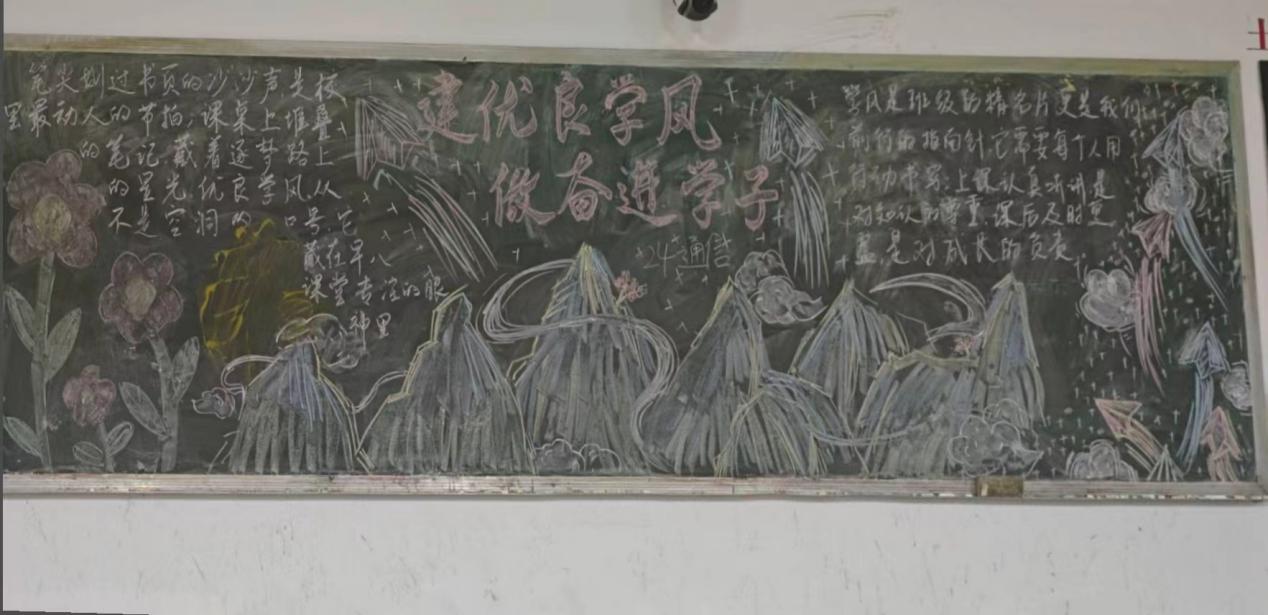 笔尖划过书页的沙沙声是校
里最动人的节拍，课桌上堆叠
的笔记藏着逐梦路上
的星光，优良学风从
不是空洞的口号，它
藏在早
课堂专注的眼
神里
建优良学风
做奋进学子
24 通信
学风是班级的精 名片更是我们
前行的指向针，它需要每个人用
行动书写，上课认真听讲是
对知识的尊重，课后及时
是对成长的负责